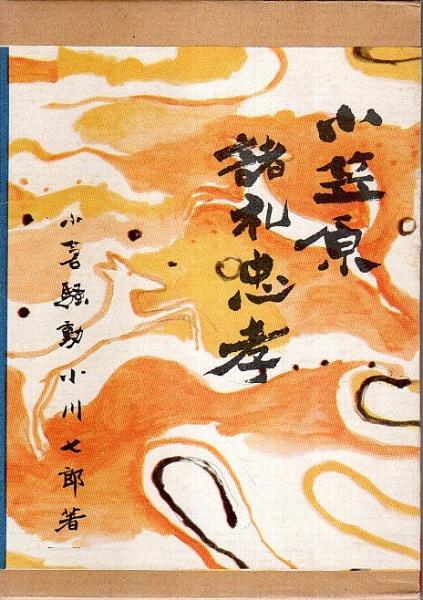 小笠原
諸礼忠孝
小倉騒動 小川七郎著